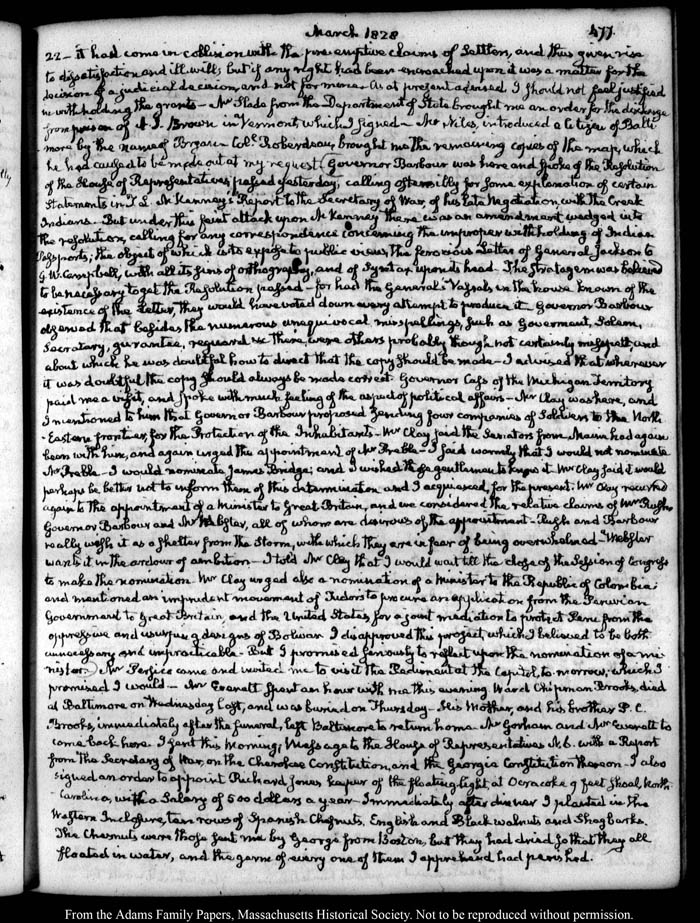 March 1828
477
22 - it had come in collision with the pre-emptive claims of Settlers, and thus given rise
to dissatisfaction and ill will; but if any right had been encroached upon it was a matter for the
decision of a judicial decision, and not for mine. As at present advised I should not feel justified
in withholding the grants - Mr Slade from the Department of State brought me an order for the discharge
from prison of A. I. Brown in Vermont, which I signed - Mr Niles, introduced a Citizen of Balti-
-more by the name of Col. Roberdeau, brought me the remaining copies of the map, which
he had caused to be made out at my request. Governor Barbour was here and spoke of the Resolution
of the House of Representatives passed yesterday, calling ostensibly for some explanation of certain
Statements in T. L. McKenney's Report to the Secretary of War, of his late Negotiation with the Creek
Indians - But under this faint attack upon McKenney there was an amendment wedged into
the resolution, calling for any correspondence concerning the improper withholding of Indian
Passports; the object of which is to expose to public view, the ferocious Letter of General Jackson to
G. W. Campbell, with all its sins of orthography, and of Syntax upon its head - The Stratagem was believed
to be necessary to get the Resolution passed - for had the General's Vassals in the house known of the
existence of the Letter, they would have voted down every attempt to produce it - Governor Barbour
observed that besides the numerous unequivocal misspellings, such as Goverment, Solem,
Secratary, gurantee, requard &c there were others probably though not certainly misspelt, and
about which he was doubtful how to direct that the copy should be made - I advised that wherever
it was doubtful the copy should always be made correct. Governor Cass of the Michigan Territory
paid me a visit, and spoke with much feeling of the aspect of political affairs - Mr Clay was here, and
I mentioned to him that Governor Barbour proposed sending four companies of Soldiers to the North
-Eastern frontier, for the Protection of the Inhabitants - Mr Clay said the Senators from Maine had again
been with him, and again urged the appointment of Mr Preble - I said warmly that I would not nominate
Mr Preble - I would nominate James Bridge; and I wished the gentlemen to know it. Mr Clay said it would
perhaps be better not to inform them of this determination and I acquiesced, for the present. Mr Clay recurred
again to the appointment of a Minister to Great Britain, and we considered the relative claims of Mr Rush,
Governor Barbour and Mr Webster, all of whom are desirous of the appointment - Rush and Barbour
really wish it as a shelter from the Storm, with which they are in fear of being overwhelmed - Webster
wants it in the ardour of ambition - I told Mr Clay that I would wait till the close of the Session of Congress
to make the nomination. Mr Clay urged also a nomination of a Minister to the Republic of Colombia
and mentioned an imprudent movement of Tudor's to procure an application from the Peruvian
Government to Great Britain, and the United States, for a joint mediation to protect Peru from the
oppressive and usurping designs of Bolivar. I disapproved this project, which I believed to be both
unnecessary and impracticable - But I promised seriously to reflect upon the nomination of a mi-
nister. Mr Persico came and invited me to visit the Pediment at the Capitol, to-morrow, which I
promised I would - Mr Everett spent an hour with me this evening. Ward Chipman Brooks, died
at Baltimore on Wednesday last, and was buried on Thursday - His Mother, and his brother P. C.
Brooks, immediately after the funeral, left Baltimore to return home. Mr Gorham and Mrs Everett to
come back here. I sent this Morning, Message to the House of Representatives N. 6. with a Report
from the Secretary of War, on the Cherokee Constitution, and the Georgia Constitution thereon - I also
signed an order to appoint Richard Jones keeper of the floating light, at Ocracoke 9 feet Shoal, North
Carolina, with a Salary of 500 dollars a year - Immediately after dinner I planted in the
Western Inclosure, ten rows of Spanish Chesnuts, English and Black walnuts and Shagbarks.
The Chesnuts were those sent me by George from Boston, but they had dried so that they all
floated in water, and the germ of every one of them I apprehend had perished.
From the Adams Family Papers, Massachusetts Historical Society. Not to be reproduced without permission.